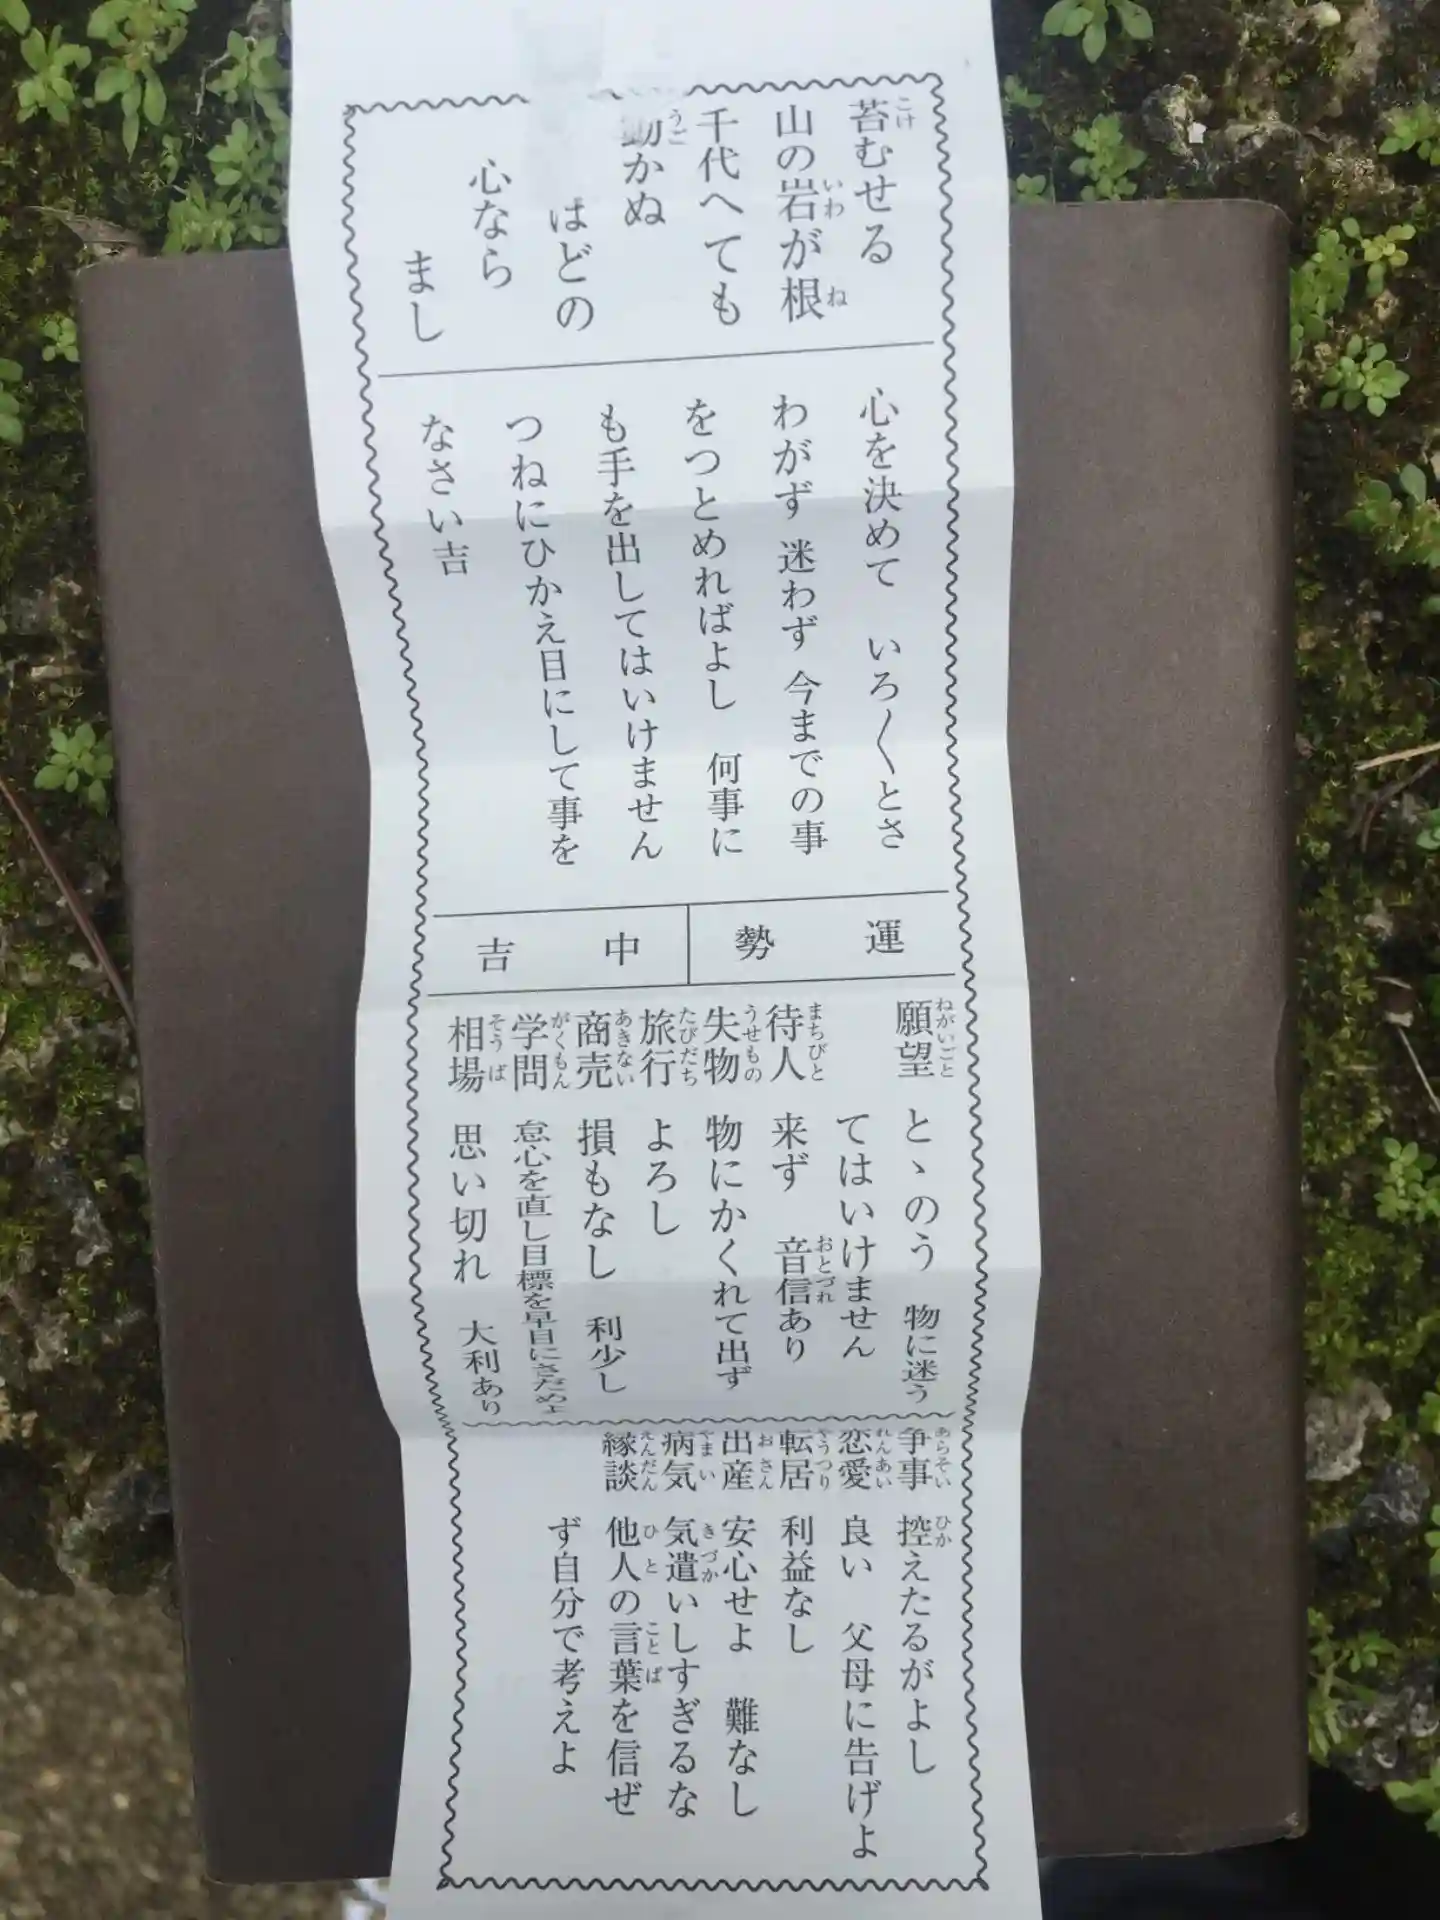 苔むせる
山の岩が根
千代へても
動かぬ
はどの
心なら
まし
心を決めて いろ〱とさ
わがず 迷わず 今までの事
をつとめればよし 何事に
も手を出してはいけません
つねにひかえ目にして事を
なさい吉
運勢 中吉
願望 とゝのう 物に迷う
てはいけません
待人 来ず 音信あり
失物 物にかくれて出ず
旅行 よろし
商売 損もなし 利少し
学問 怠心を直し目標を早目にさだめよ
相場 思い切れ 大利あり
争事 控えたるがよし
恋愛 良い 父母に告げよ
転居 利益なし
出産 安心せよ 難なし
病気 気遣いしすぎるな
縁談 他人の言葉を信ぜ
ず自分で考えよ